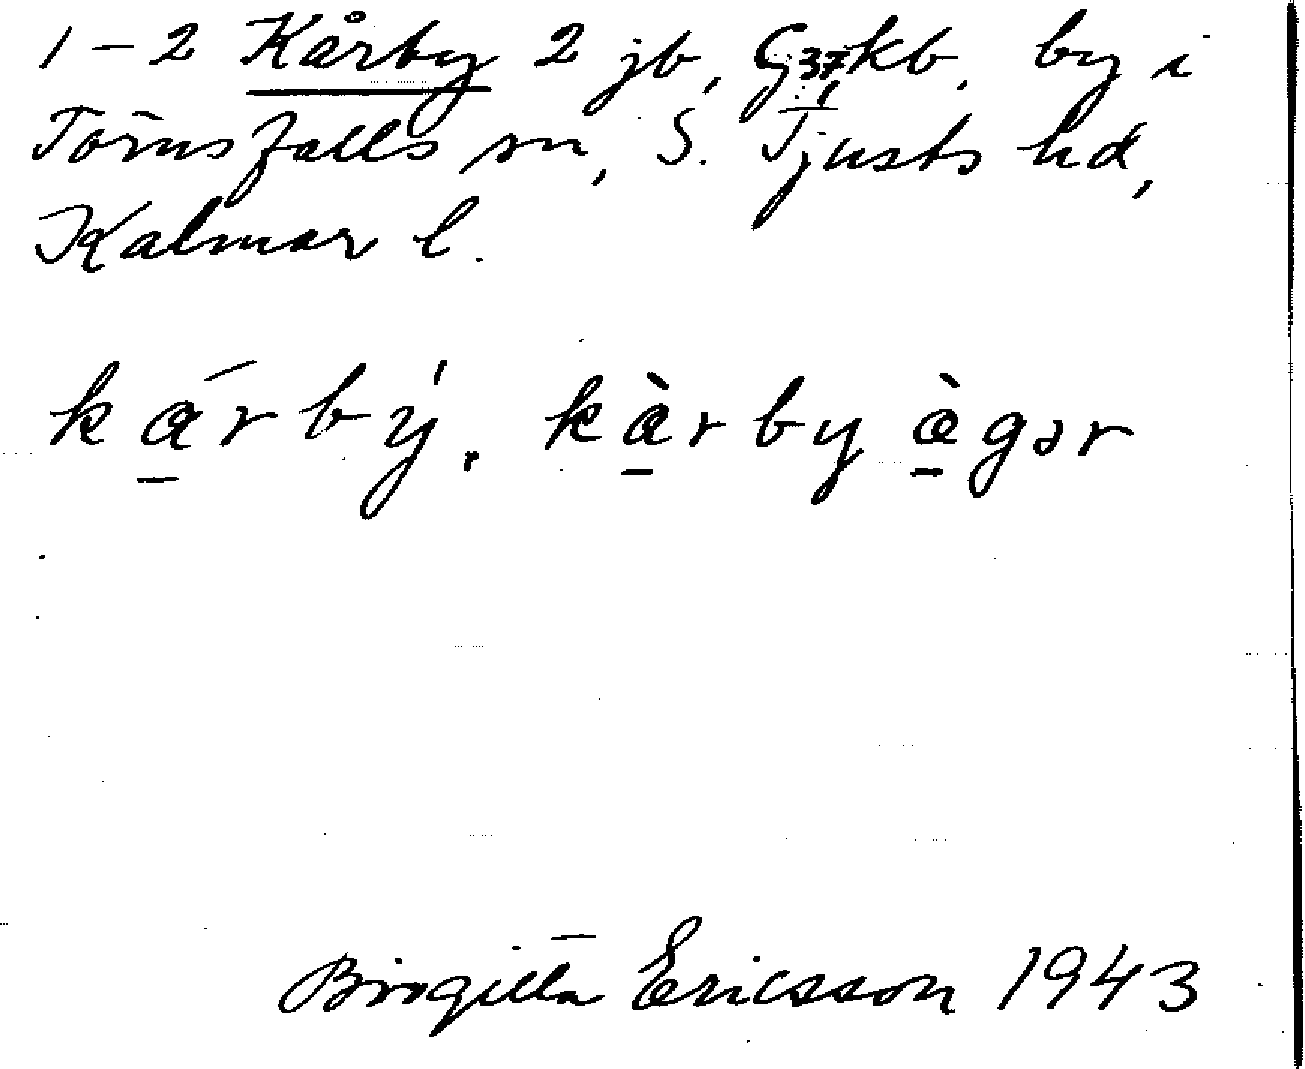 1–2 Kårby 2 jb, G37kb. by i
Törnsfalls sn, S. Tjusts hd,
Kalmar l.
ká̲rbý. kà̲rby à̲gər
Birgitta Ericsson 1943